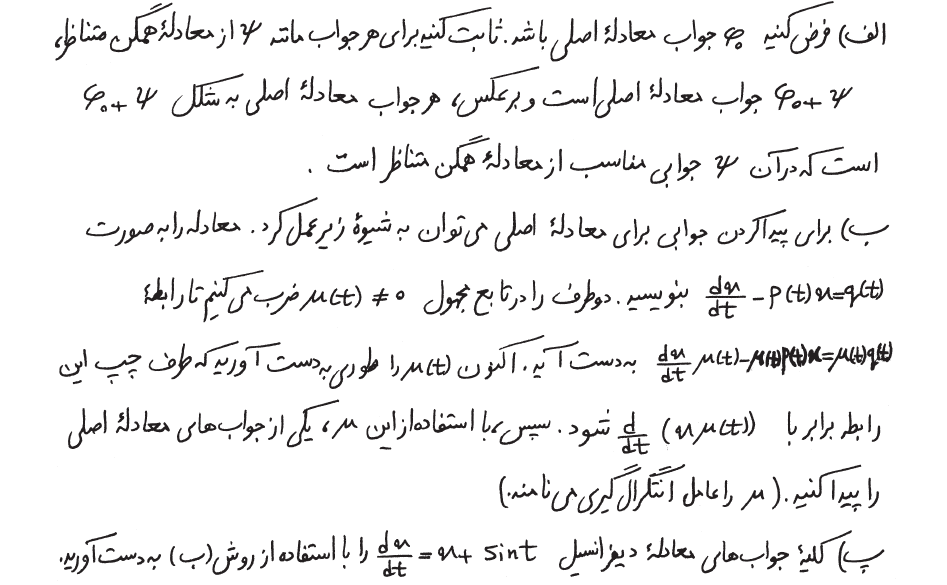 الف) فرض کنید φ₀ جواب معادلهٔ اصلی باشد. ثابت کنید برای هر جواب مانند ψ از معادلهٔ همگن متناظر،
φ₀+ψ جواب معادلهٔ اصلی است و برعکس، هر جواب معادلهٔ اصلی به شکل φ₀+ψ
است که در آن ψ جوابی مناسب از معادلهٔ همگن متناظر است.
ب) برای پیدا کردن جوابی برای معادلهٔ اصلی می‌توان به شیوهٔ زیر عمل کرد. معادله را به صورت
dx/dt - P(t)x = q(t) بنویسید. دو طرف را در تابع مجهول μ(t) ≠ 0 ضرب می‌کنیم تا رابطهٔ
dx/dt μ(t) - μ(t)P(t)x = μ(t)q(t) به دست آید. اکنون μ(t) را طوری به دست آورید که طرف چپ این
رابطه برابر با d/dt (x μ(t)) شود. سپس، با استفاده از این μ، یکی از جواب‌های معادلهٔ اصلی
را پیدا کنید. (μ را عامل انتگرال‌گیری می‌نامند.)
پ) کلیهٔ جواب‌های معادلهٔ دیفرانسیل dx/dt = x + sin t را با استفاده از روش (ب) به دست آورید.